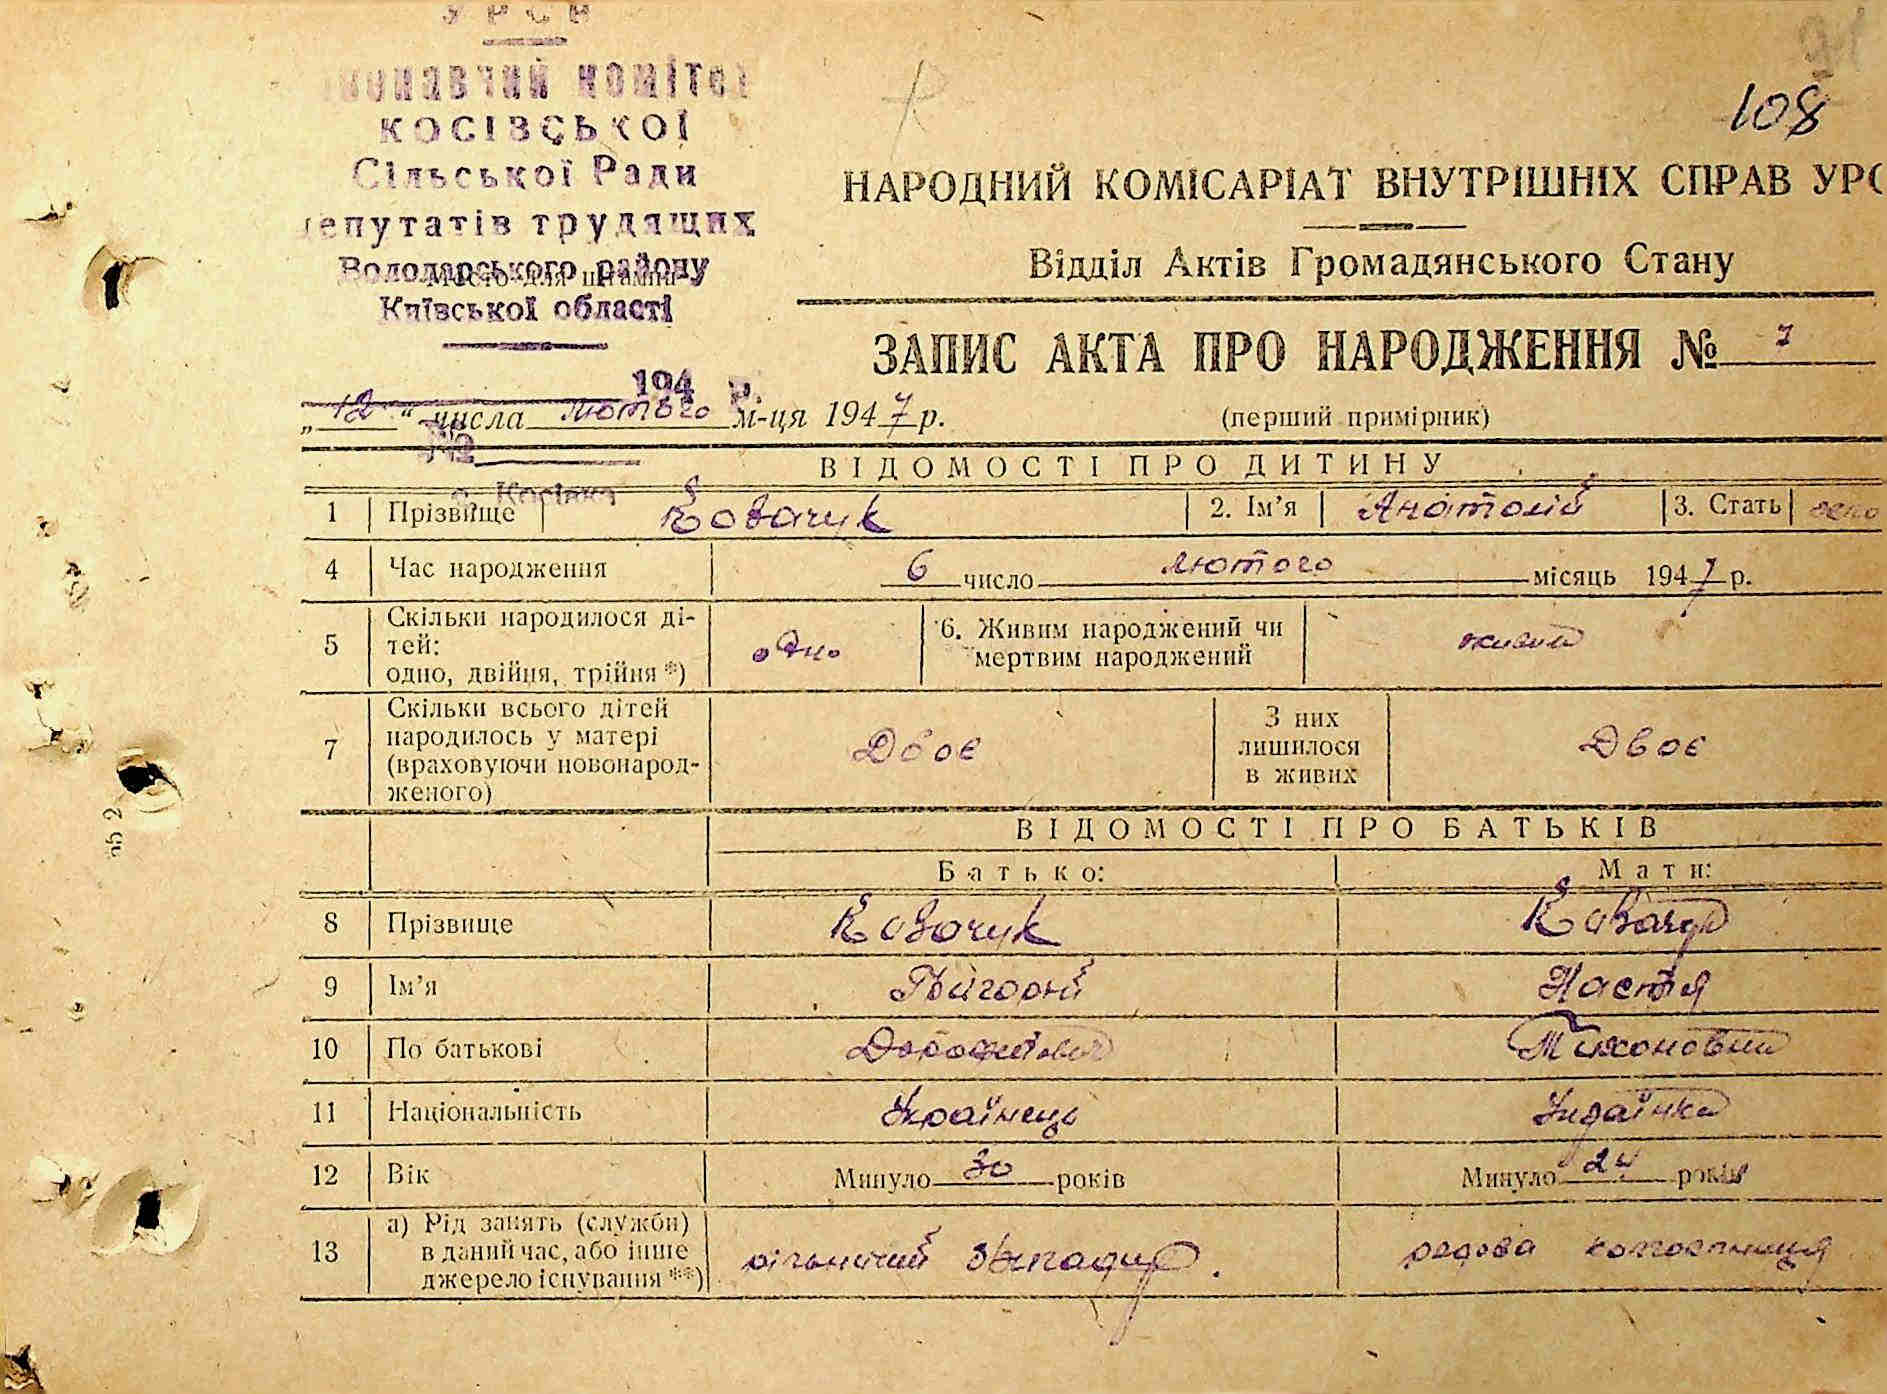 УРСР
Виконавчий комітет
КОСІВСЬКОЇ
Сільської Ради
депутатів трудящих
Володарського району
Место для штампа
Київської області
194 р.
№
с. Косівка
108
НАРОДНИЙ КОМІСАРІАТ ВНУТРІШНІХ СПРАВ УРС
Відділ Актів Громадянського Стану
ЗАПИС АКТА ПРО НАРОДЖЕННЯ № 7
„12“ числа лютого м-ця 1947 р.
(перший примірник)
ВІДОМОСТІ ПРО ДИТИНУ
1 Прізвище Ковачук 2. Ім’я Анатолій 3. Стать
4 Час народження 6 число лютого місяць 1947 р.
5 Скільки народилося ді-
тей:
одно, двійня, трійня *) одно
6. Живим народжений чи
мертвим народжений живий
7 Скільки всього дітей
народилось у матері
(враховуючи новонарод-
женого) Двоє
З них
лишилося
в живих Двоє
ВІДОМОСТІ ПРО БАТЬКІВ
Батько: Мати:
8 Прізвище Ковачук Ковачук
9 Ім’я Григорій Настя
10 По батькові Дорофейович Тихоновна
11 Національність Українець Українка
12 Вік Минуло 30 років Минуло 24 років
13 а) Рід занять (служби)
в даний час, або інше
джерело існування **)
рільничий бригадир. рядова колгоспниця
зб 2